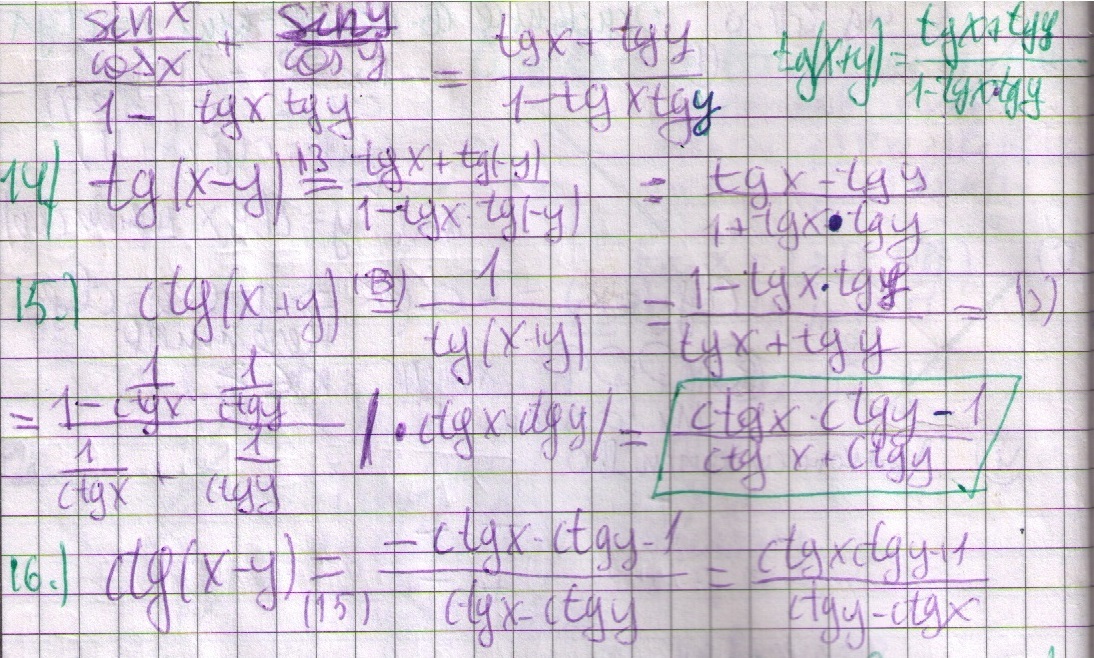 (sin x / cos x + sin y / cos y) / (1 - tgx tgy) = (tgx + tgy) / (1 - tgx tgy)    tg(x+y) = (tgx + tgy) / (1 - tgx·tgy)
14) tg(x-y) =^13 (tgx + tg(-y)) / (1 - tgx·tg(-y)) = (tgx - tgy) / (1 + tgx·tgy)
15.) ctg(x+y) =^(3) 1 / tg(x+y) = (1 - tgx·tgy) / (tgx + tgy) = (3)
= (1 - 1/ctgx · 1/ctgy) / (1/ctgx + 1/ctgy) / · ctgx·ctgy / = (ctgx·ctgy - 1) / (ctg x + ctgy)
16.) ctg(x-y) =_(15) (-ctgx·ctgy - 1) / (ctgx - ctgy) = (ctgxctgy + 1) / (ctgy - ctgx)